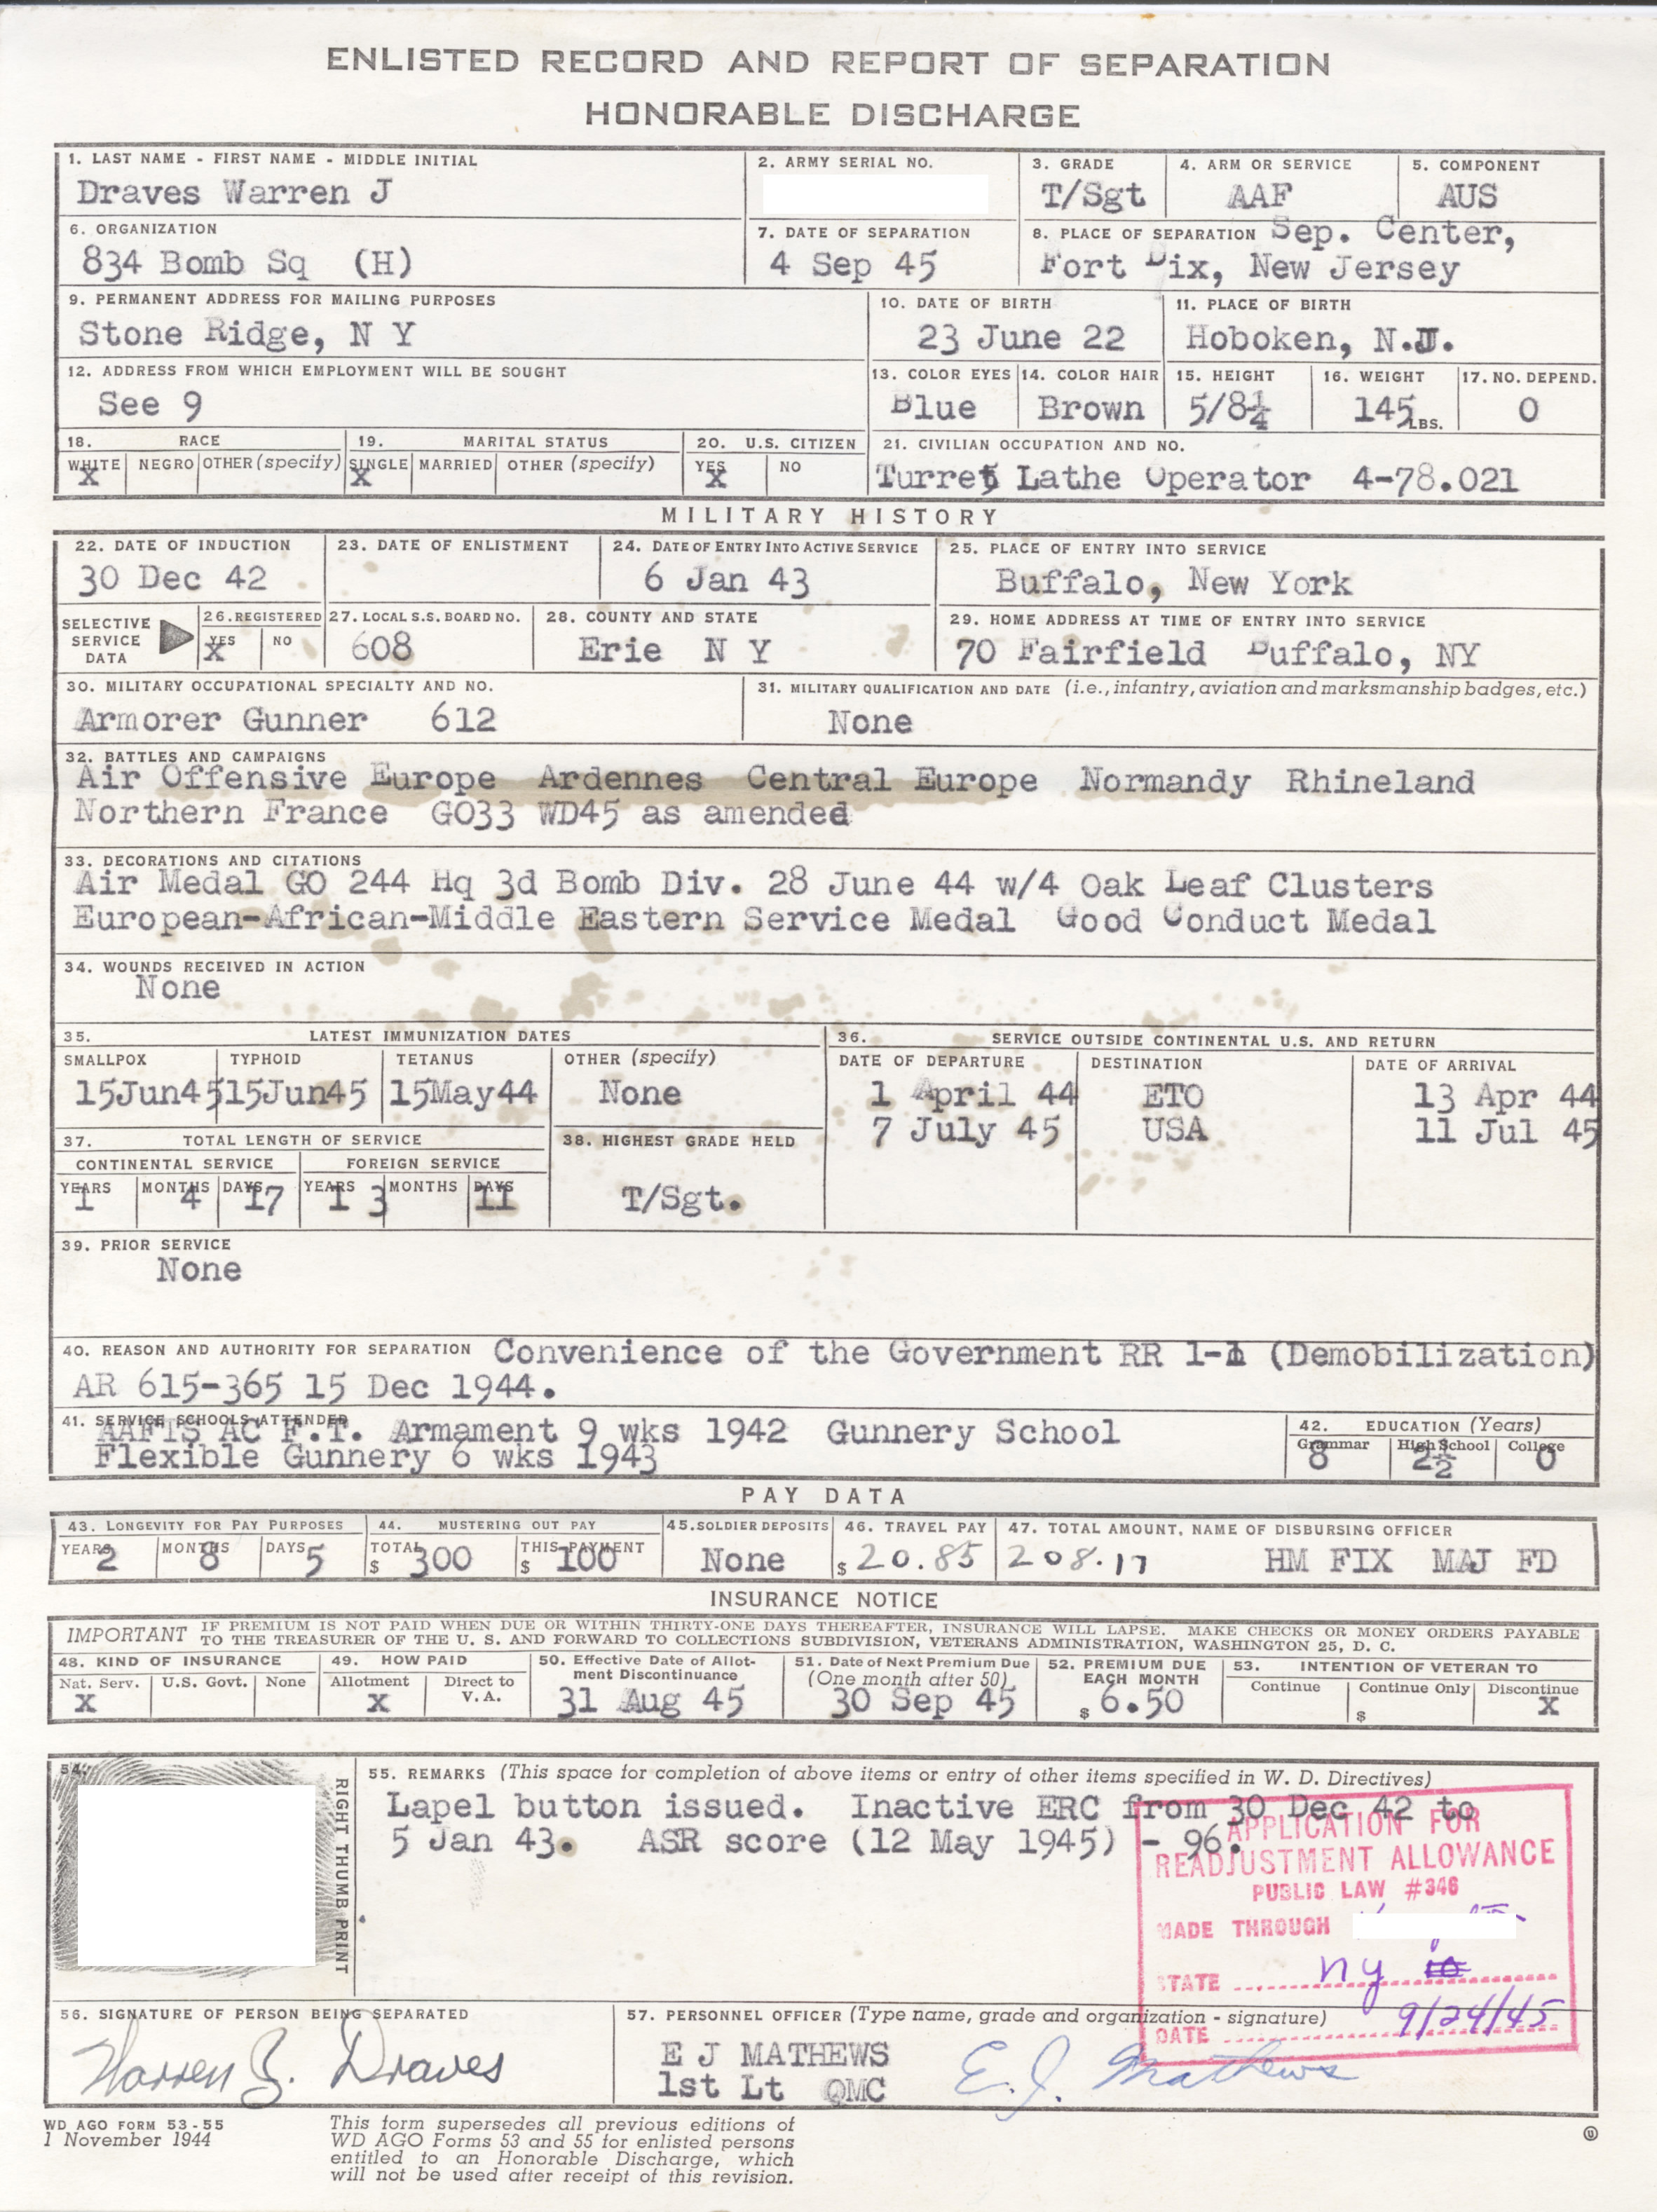 ENLISTED RECORD AND REPORT OF SEPARATION
HONORABLE DISCHARGE
1. LAST NAME - FIRST NAME - MIDDLE INITIAL
Draves Warren J
2. ARMY SERIAL NO.
3. GRADE
T/Sgt
4. ARM OR SERVICE
AAF
5. COMPONENT
AUS
6. ORGANIZATION
834 Bomb Sq (H)
7. DATE OF SEPARATION
4 Sep 45
8. PLACE OF SEPARATION Sep. Center,
Fort Dix, New Jersey
9. PERMANENT ADDRESS FOR MAILING PURPOSES
Stone Ridge, N Y
10. DATE OF BIRTH
23 June 22
11. PLACE OF BIRTH
Hoboken, N.J.
12. ADDRESS FROM WHICH EMPLOYMENT WILL BE SOUGHT
See 9
13. COLOR EYES
Blue
14. COLOR HAIR
Brown
15. HEIGHT
5/8¼
16. WEIGHT
145 LBS.
17. NO. DEPEND.
0
18. RACE
WHITE NEGRO OTHER (specify)
X
19. MARITAL STATUS
SINGLE MARRIED OTHER (specify)
X
20. U.S. CITIZEN
YES NO
X
21. CIVILIAN OCCUPATION AND NO.
Turret Lathe Operator 4-78.021
MILITARY HISTORY
22. DATE OF INDUCTION
30 Dec 42
23. DATE OF ENLISTMENT
24. DATE OF ENTRY INTO ACTIVE SERVICE
6 Jan 43
25. PLACE OF ENTRY INTO SERVICE
Buffalo, New York
SELECTIVE SERVICE DATA
26. REGISTERED
YES NO
X
27. LOCAL S.S. BOARD NO.
608
28. COUNTY AND STATE
Erie N Y
29. HOME ADDRESS AT TIME OF ENTRY INTO SERVICE
70 Fairfield Buffalo, NY
30. MILITARY OCCUPATIONAL SPECIALTY AND NO.
Armorer Gunner 612
31. MILITARY QUALIFICATION AND DATE (i.e., infantry, aviation and marksmanship badges, etc.)
None
32. BATTLES AND CAMPAIGNS
Air Offensive Europe Ardennes Central Europe Normandy Rhineland
Northern France GO33 WD45 as amended
33. DECORATIONS AND CITATIONS
Air Medal GO 244 Hq 3d Bomb Div. 28 June 44 w/4 Oak Leaf Clusters
European-African-Middle Eastern Service Medal Good Conduct Medal
34. WOUNDS RECEIVED IN ACTION
None
35. LATEST IMMUNIZATION DATES
SMALLPOX TYPHOID TETANUS OTHER (specify)
15Jun45 15Jun45 15May44 None
36. SERVICE OUTSIDE CONTINENTAL U.S. AND RETURN
DATE OF DEPARTURE DESTINATION DATE OF ARRIVAL
1 April 44 ETO 13 Apr 44
7 July 45 USA 11 Jul 45
37. TOTAL LENGTH OF SERVICE
CONTINENTAL SERVICE FOREIGN SERVICE
YEARS MONTHS DAYS YEARS MONTHS DAYS
1 4 17 1 3 11
38. HIGHEST GRADE HELD
T/Sgt.
39. PRIOR SERVICE
None
40. REASON AND AUTHORITY FOR SEPARATION Convenience of the Government RR 1-1 (Demobilization)
AR 615-365 15 Dec 1944.
41. SERVICE SCHOOLS ATTENDED
AAFTS AC F.T. Armament 9 wks 1942 Gunnery School
Flexible Gunnery 6 wks 1943
42. EDUCATION (Years)
Grammar High School College
8 2½ 0
PAY DATA
43. LONGEVITY FOR PAY PURPOSES
YEARS MONTHS DAYS
2 8 5
44. MUSTERING OUT PAY
TOTAL THIS PAYMENT
$ 300 $ 100
45. SOLDIER DEPOSITS
None
46. TRAVEL PAY
$ 20.85
47. TOTAL AMOUNT, NAME OF DISBURSING OFFICER
208.17 HM FIX MAJ FD
INSURANCE NOTICE
IMPORTANT IF PREMIUM IS NOT PAID WHEN DUE OR WITHIN THIRTY-ONE DAYS THEREAFTER, INSURANCE WILL LAPSE. MAKE CHECKS OR MONEY ORDERS PAYABLE
TO THE TREASURER OF THE U. S. AND FORWARD TO COLLECTIONS SUBDIVISION, VETERANS ADMINISTRATION, WASHINGTON 25, D. C.
48. KIND OF INSURANCE
Nat. Serv. U.S. Govt. None
X
49. HOW PAID
Allotment Direct to V. A.
X
50. Effective Date of Allot-
ment Discontinuance
31 Aug 45
51. Date of Next Premium Due
(One month after 50)
30 Sep 45
52. PREMIUM DUE
EACH MONTH
$ 6.50
53. INTENTION OF VETERAN TO
Continue Continue Only Discontinue
$ X
54.
RIGHT THUMB PRINT
55. REMARKS (This space for completion of above items or entry of other items specified in W. D. Directives)
Lapel button issued. Inactive ERC from 30 Dec 42 to
5 Jan 43. ASR score (12 May 1945) - 96.
APPLICATION FOR
READJUSTMENT ALLOWANCE
PUBLIC LAW #346
MADE THROUGH
STATE ny
DATE 9/24/45
56. SIGNATURE OF PERSON BEING SEPARATED
Warren J. Draves
57. PERSONNEL OFFICER (Type name, grade and organization - signature)
E J MATHEWS
1st Lt QMC
E. J. Mathews
WD AGO FORM 53-55
1 November 1944
This form supersedes all previous editions of
WD AGO Forms 53 and 55 for enlisted persons
entitled to an Honorable Discharge, which
will not be used after receipt of this revision.